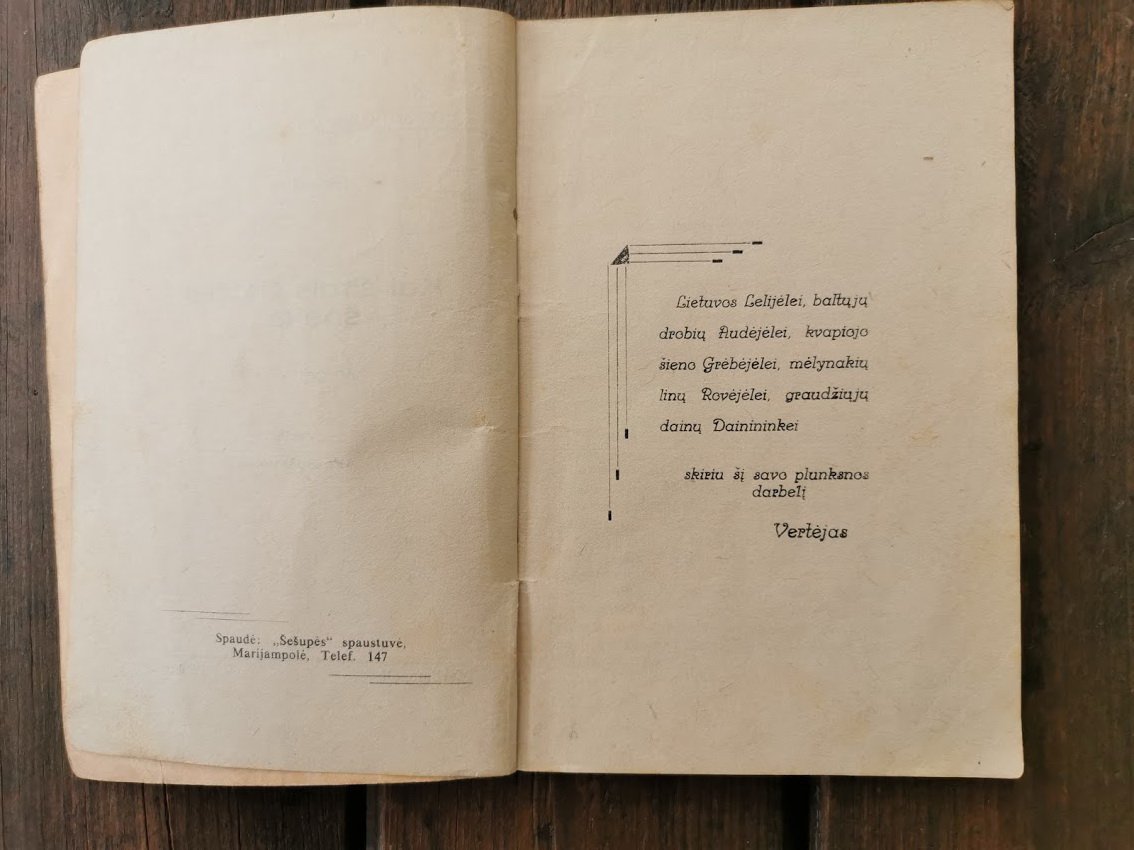 Spaudė: „Šešupės“ spaustuvė,
Marijampolė, Telef. 147
Lietuvos Lelijėlei, baltųjų
drobių Audėjėlei, kvapiojo
šieno Grėbėjėlei, mėlynakių
linų Rovėjėlei, graudžiųjų
dainų Dainininkei
skiriu šį savo plunksnos
darbelį
Vertėjas